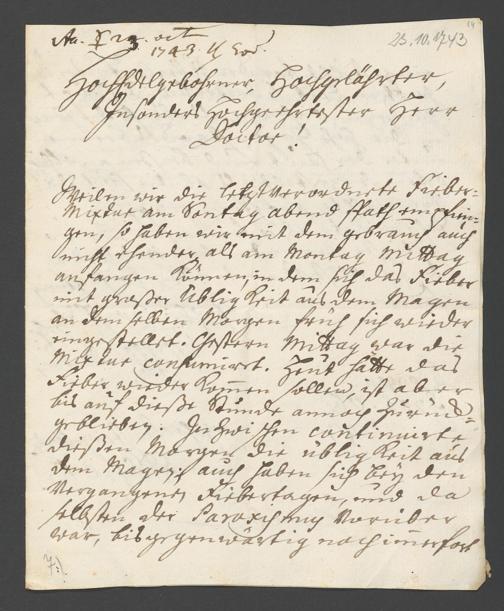 23. oct
1743.
23.10.1743
HochEdelgebohrner, Hochgelährter,
Insonders Hochgeehrtester Herr
Doctor!
Weilen wir die letzt verordnete Fieber-
Mixtur am Sontag abend spath empfan-
gen, so haben wir mit dem gebrauch auch
nicht ehender, als am Montag Mittag
anfangen können, indem sich das Fieber
mit großer Übligkeit aus dem Magen
an demselben Morgen früh sich wieder
eingestellet. Gestern Mittag war die
Mixtur consumiret. Heut hätte das
Fieber wieder kommen sollen, ist aber
bis auf dieße Stunde annoch zurück-
geblieben. Inzwischen continuirte
dießen Morgen die übligkeit aus
dem Magen; auch haben sich bey den
vergangenen Fiebertagen, und da
selbsten der Paroxismus vorüber
war, bis gegenwärtig noch immerfort